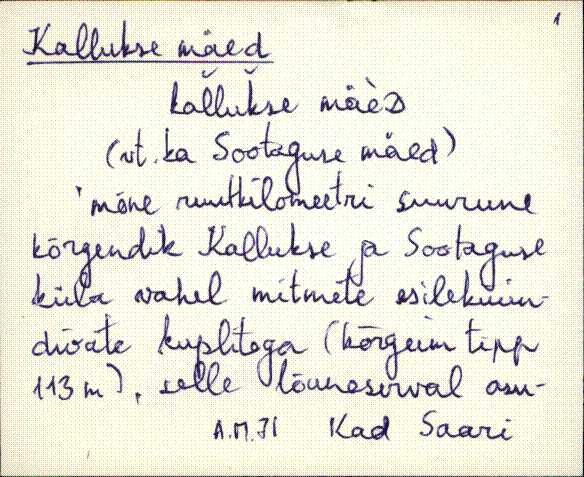 1
Kallukse mäed
kallukse mäeᴅ
(vt. ka Sootaguse mäed)
'mõne ruutkilomeetri suurune
kõrgendik Kallukse ja Sootaguse
küla vahel mitmete esileküün-
divate kuplitega (kõrgeim tipp
113 m), selle lõunaserval asu-
A.M.71 Kad Saari